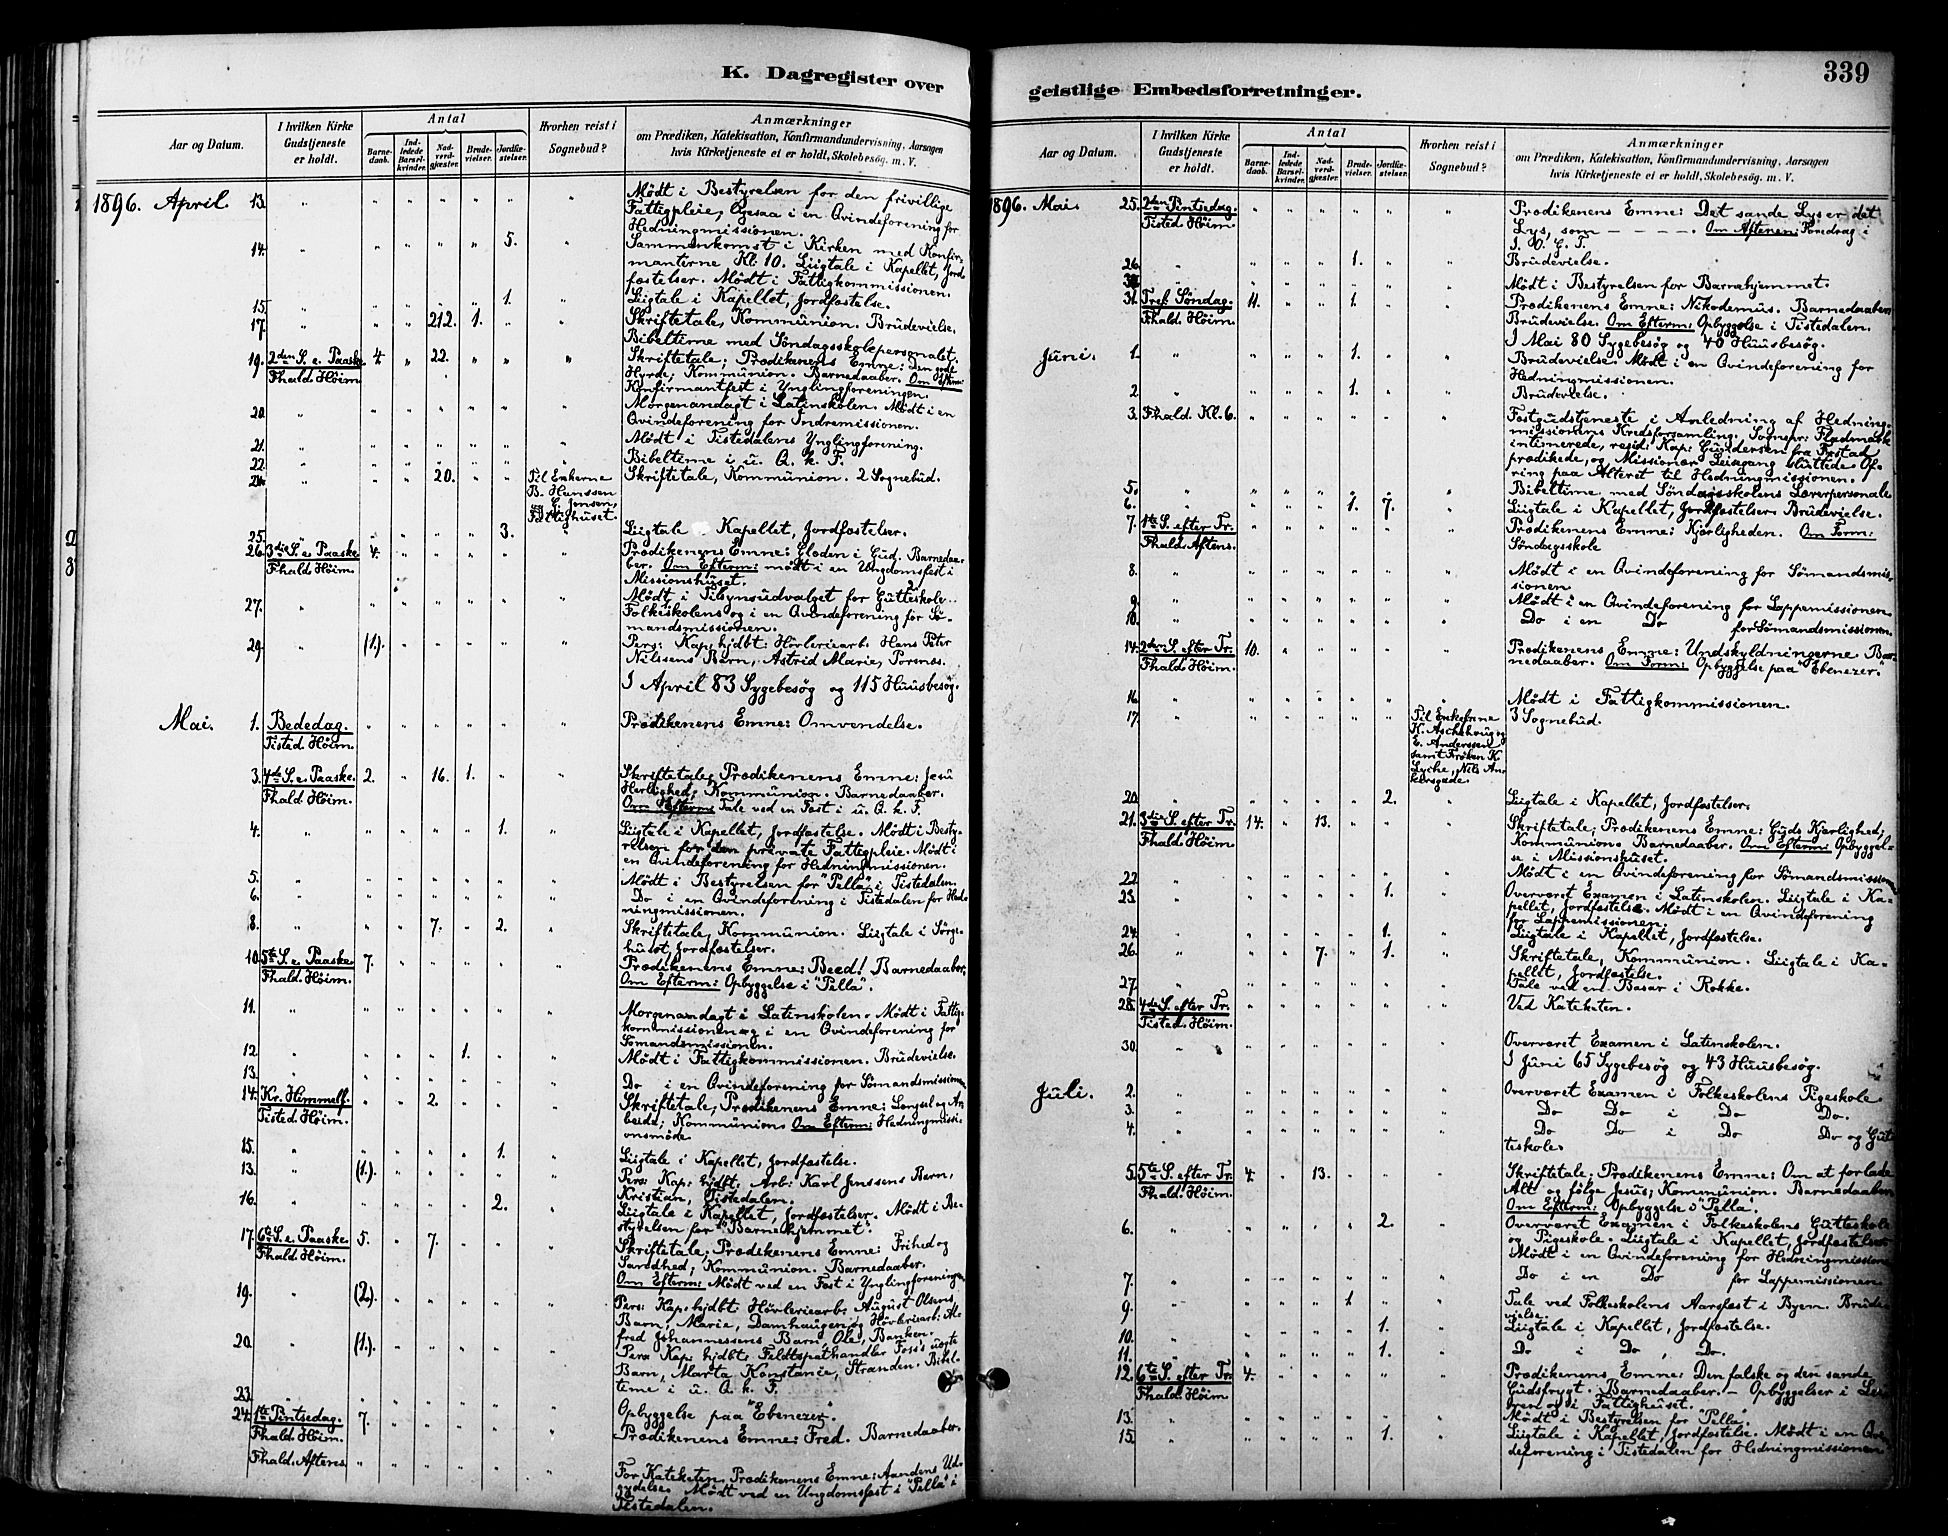 K. Dagregister over
Aar og Datum.
I hvilken Kirke Gudstjeneste er holdt.
Antal
Barne-daab.
Ind-ledede Barsel-kvinder.
Nad-verd-gjæster.
Brude-vielser.
Jordfæ-stelser.
Hvorhen reist i Sognebud?
Anmærkninger
om Prædiken, Katekisation, Konfirmandundervisning, Aarsagen
hvis Kirketjeneste ei er holdt, Skolebesøg. m. V.
1896. April 13. Mödt i Bestyrelsen for den frivillige
Fattigpleie, Ogsaa i en Qvindeforening for
Hedningmissionen.
14. 5. Sammenkomst i Kirken med Konfir-
manterne Kl. 10. Liigtale i Kapellet, Jord-
fæstelser. Mödt i Fattigkommissionen.
15. 1. Liigtale i Kapellet, Jordfæstelse.
17. 212. 1. Skriftetale, Kommünion. Brüdevielse.
Bibeltime med Söndagsskolepersonalet.
19. 2den S. e. Paaske 4. 22. Skriftetale; Prædikenens Emne: Den gode
Fhald. Höim. Hyrde; Kommünion. Barnedaaber. Om Efterm:
Konfirmantfest i Ynglingforeningen.
20. Morgenandagt i Latinskolen. Mödt i en
Qvindeforening for Indremissionen.
21. Mödt i Tistedalens Ynglingforening.
22. Bibeltime i ü. Q. k. F.
24. 20. Til Enkerne Skriftetale, Kommünion. 2 Sognebud.
B. Hanssen
Jensen,
Fattighüset.
25. 3. Liigtale Kapellet, Jordfæstelser.
26. 3die S. e. Paaske 4. Prædikenens Emne: Gloden i Gud. Barnedaa-
Fhald. Höim. ber. Om Efterm: mödt i en Ungdomsfest i
Missionshüset.
27. Mödt i Tilsynsudvalget for Gütteskole
Folkeskolens og i en Qvindeforening for Sö-
mandsmissionen.
29. (1.) Pers: Kap: hjdbt: Hövlerïearb: Hans Peter
Nilssens Barn, Astrid Marie, Torsnæs.
I April 83 Sygebesøg og 115 Huusbesøg.
Mai. 1. Bededag. Prædikenens Emne: Omvendelse.
Tisted. Höim.
3. 4de S. e. Paaske. 2. 16. 1. Skriftetale; Prædikenens Emne: Jesü
Fhald. Höim. Herlighed; Kommünion. Barnedaaber.
Om Efterm: Tale ved en Fest i ü. Q. k. F.
4. 1. Liigtale i Kapellet, Jordfæstelse. Mödt i Besty-
relsen for den private Fattigpleie. Mödt i
en Qvindeforening for Hedningmissionen.
5. Mödt i Bestyrelsen for "Pella" i Tistedalen.
6. Do i en Qvindeforening i Tistedalen for Hed-
ningmissionen.
8. 7. 2. Skriftetale, Kommünion. Liigtale i Sörge-
hüset, Jordfæstelser.
10. 5te S. e. Paaske 7. Prædikenens Emne: Beed! Barnedaaber.
Fhald. Höim. Om Efterm: Opbyggelse i "Pella".
11. Morgenandagt i Latinskolen. Mödt i Fattig-
kommissionen og i en Qvindeforening for
Sömandsmissionen.
12. 1. Mödt i Fattigkommissionen. Brüdevielse.
13. Do i en Qvindeforening for Sömandsmissionen
14. Kr. Himmelf. 2. Skriftetale; Prædikenens Emne: Længsel og Ar-
Tisted. Höim. beide; Kommünion. Om Efterm: Hedningmissi-
onsmöde
15. 1. Liigtale i Kapellet, Jordfæstelse.
13. (1.) Pers: Kap: hjdbt: Arb: Karl Jenssens Barn,
Kristian, Tistedalen.
16. 2. Liigtale i Kapellet, Jordfæstelser. Mödt i Be-
styrelsen for "Barnehjemmet".
17. 6te S. e. Paaske 5. 7. Skriftetale; Prædikenens Emne: Frihed og
Fhald. Höim. Sanddhed; Kommünion. Barnedaaber.
Om Efterm: Mödt ved en Fest i Ynglingforeningen
19. (2.) Pers: Kap: hjdbt: Hövlerïearb: August Olsens
Barn, Marie, Damhaugen og Hövlerïearb: Al-
fred Johannessens Barn, Ole, Banken.
20. (1.) Pers Kap: hjdbt: Feldtspathandler Foss's üægte
Barn, Marta Konstance, Stranden. Bibel-
time i ü. Q. k. F.
23. Opbyggelse paa "Ebenezer".
24. 1te Pintsedag. 7. Prædikenens Emne: Fred. Barnedaaber.
Fhald. Höim.
Fhald. Aftens For Kateketen. Prædikenens Emne: Aandens Ud-
gydelse. Mödt ved en Ungdomsfest i "Pella" i
Tistedalen.
geistlige Embedsforretninger.
339
Aar og Datum.
I hvilken Kirke Gudstjeneste er holdt.
Antal
Barne-daab.
Ind-ledede Barsel-kvinder.
Nad-verd-gjæster.
Brude-vielser.
Jordfæ-stelser.
Hvorhen reist i Sognebud?
Anmærkninger
om Prædiken, Katekisation, Konfirmandundervisning, Aarsagen
hvis Kirketjeneste ei er holdt, Skolebesøg. m. V.
1896. Mai. 25. 2den Pintsedag. Prædikenens Emne: Det sande Lys er det
Tisted. Höim. Lys, som – – – –. Om Aftenen: Foredrag i
26. 1. Brüdevielse.
Mödt i Bestyrelsen for Barnehjemmet.
31. Tref. Söndag. 11. 1. Prædikenens Emne: Nikodemüs. Barnedaaber
Fhald. Höim. Brüdevielse. Om Efterm: Opbyggelse i Tistedalen.
I Mai 80 Sygebesøg og 40 Huusbesøg.
Juni. 1. 1. Brüdevielse. Mödt i en Qvindeforening for
Hedningmissionen.
2 1. Brüdevielse.
3. Fhald. Kl. 6. Festgudstjeneste i Anledning af Hedning-
missionens Kredsforsamling. Sognepr: Fladmark
intimerede, resid: Kap: Gündersen fra Tistad
prædikede, og Missionær Leisegang slüttede. Of-
ring paa Alteret til Hedningmissionen.
5. Bibeltime med Söndagsskolens Lærerpersonale
6. 1. 7. Liigtale i Kapellet, Jordfæstelser. Brüdevielse.
7. 1te S. efter Tr. Prædikenens Emne: Kjærligheden. Om Form:
Fhald. Aftens. Söndagsskole
8. Mödt i en Qvindeforening for Sömandsmis-
sionen.
9. Mödt i en Qvindeforening for Lappemissionen
10. Do i en Do for Sömandsmissionen.
14. 2den S. efter Tr. 10. Prædikenens Emne: Undskyldningerne. Bar-
Fhald. Höim. nedaaber. Om Form: Opbyggelse paa "Ebenezer".
16. Mödt i Fattigkommissionen.
17. Til Enkefrue 3 Sognebud.
K. Aschehoug og
E. Anderssen
samt Fröken K.
Lyche, Nils An-
kersgade.
20. 2. Liigtale i Kapellet, Jordfæstelser.
21. 3die S. efter Tr. 14. 13. Skriftetale; Prædikenens Emne: Guds Kjærlighed;
Fhald. Höim. Kommünion. Barnedaaber. Om Efterm: Opbyggel-
se i Missionshuset.
22. Mödt i en Qvindeforening for Sömandsmissionen
23. 1. Overværet Examen i Latinskolen. Liigtale i Ka-
pellet, Jordfæstelse. Mödt i en Qvindeforening
for Lappemissionen.
24. 1. Liigtale i Kapellet, Jordfæstelse.
26. 7. 1. Skriftetale, Kommünion. Liigtale i Ka-
pellet, Jordfæstelse.
27. Tale ved en Basar i Rokke.
28. 4de S. efter Tr. Ved Kateketen.
Tisted. Höim.
30. Overværet Examen i Latinskolen.
I Juni 65 Sygebesøg og 43 Huusbesøg.
Juli. 2. Overværet Examen i Folkeskolens Pigeskole.
3. Do Do i Do Do.
4. Do Do i Do Do og Güt-
teskole.
5. 5te S. efter Tr. 4. 13. Skriftetale. Prædikenens Emne: Om at forlade
Fhald. Höim. Alt og følge Jesüs; Kommünion. Barnedaaber
Om Efterm: Opbyggelse i "Pella.
6. 2. Overværet Examen i Folkeskolens Gütteskole
og Pigeskole. Liigtale i Kapellet, Jordfæstelser
Mödt i en Qvindeforening for Hedningmission
7. Do i en Do for Lappemissionen
9. 1 Tale ved Folkeskolens Aarsfest i Byen. Brüde-
vielse.
10. 1. Liigtale i Kapellet, Jordfæstelse.
11. 1. Do i Do, Do.
12. 6te S. efter Tr. 4. Prædikenens Emne: Den falske og den sande
Fhald. Höim Gudsfrygt. Barnedaaber. – Opbyggelser i
og i Fattighuset.
13. Mödt i Bestyrelsen for "Pella".
15. 1. Liigtale i Kapellet, Jordfæstelse. Mödt i en Qvin-
deforening i Tistedalen for Hedningmissionen